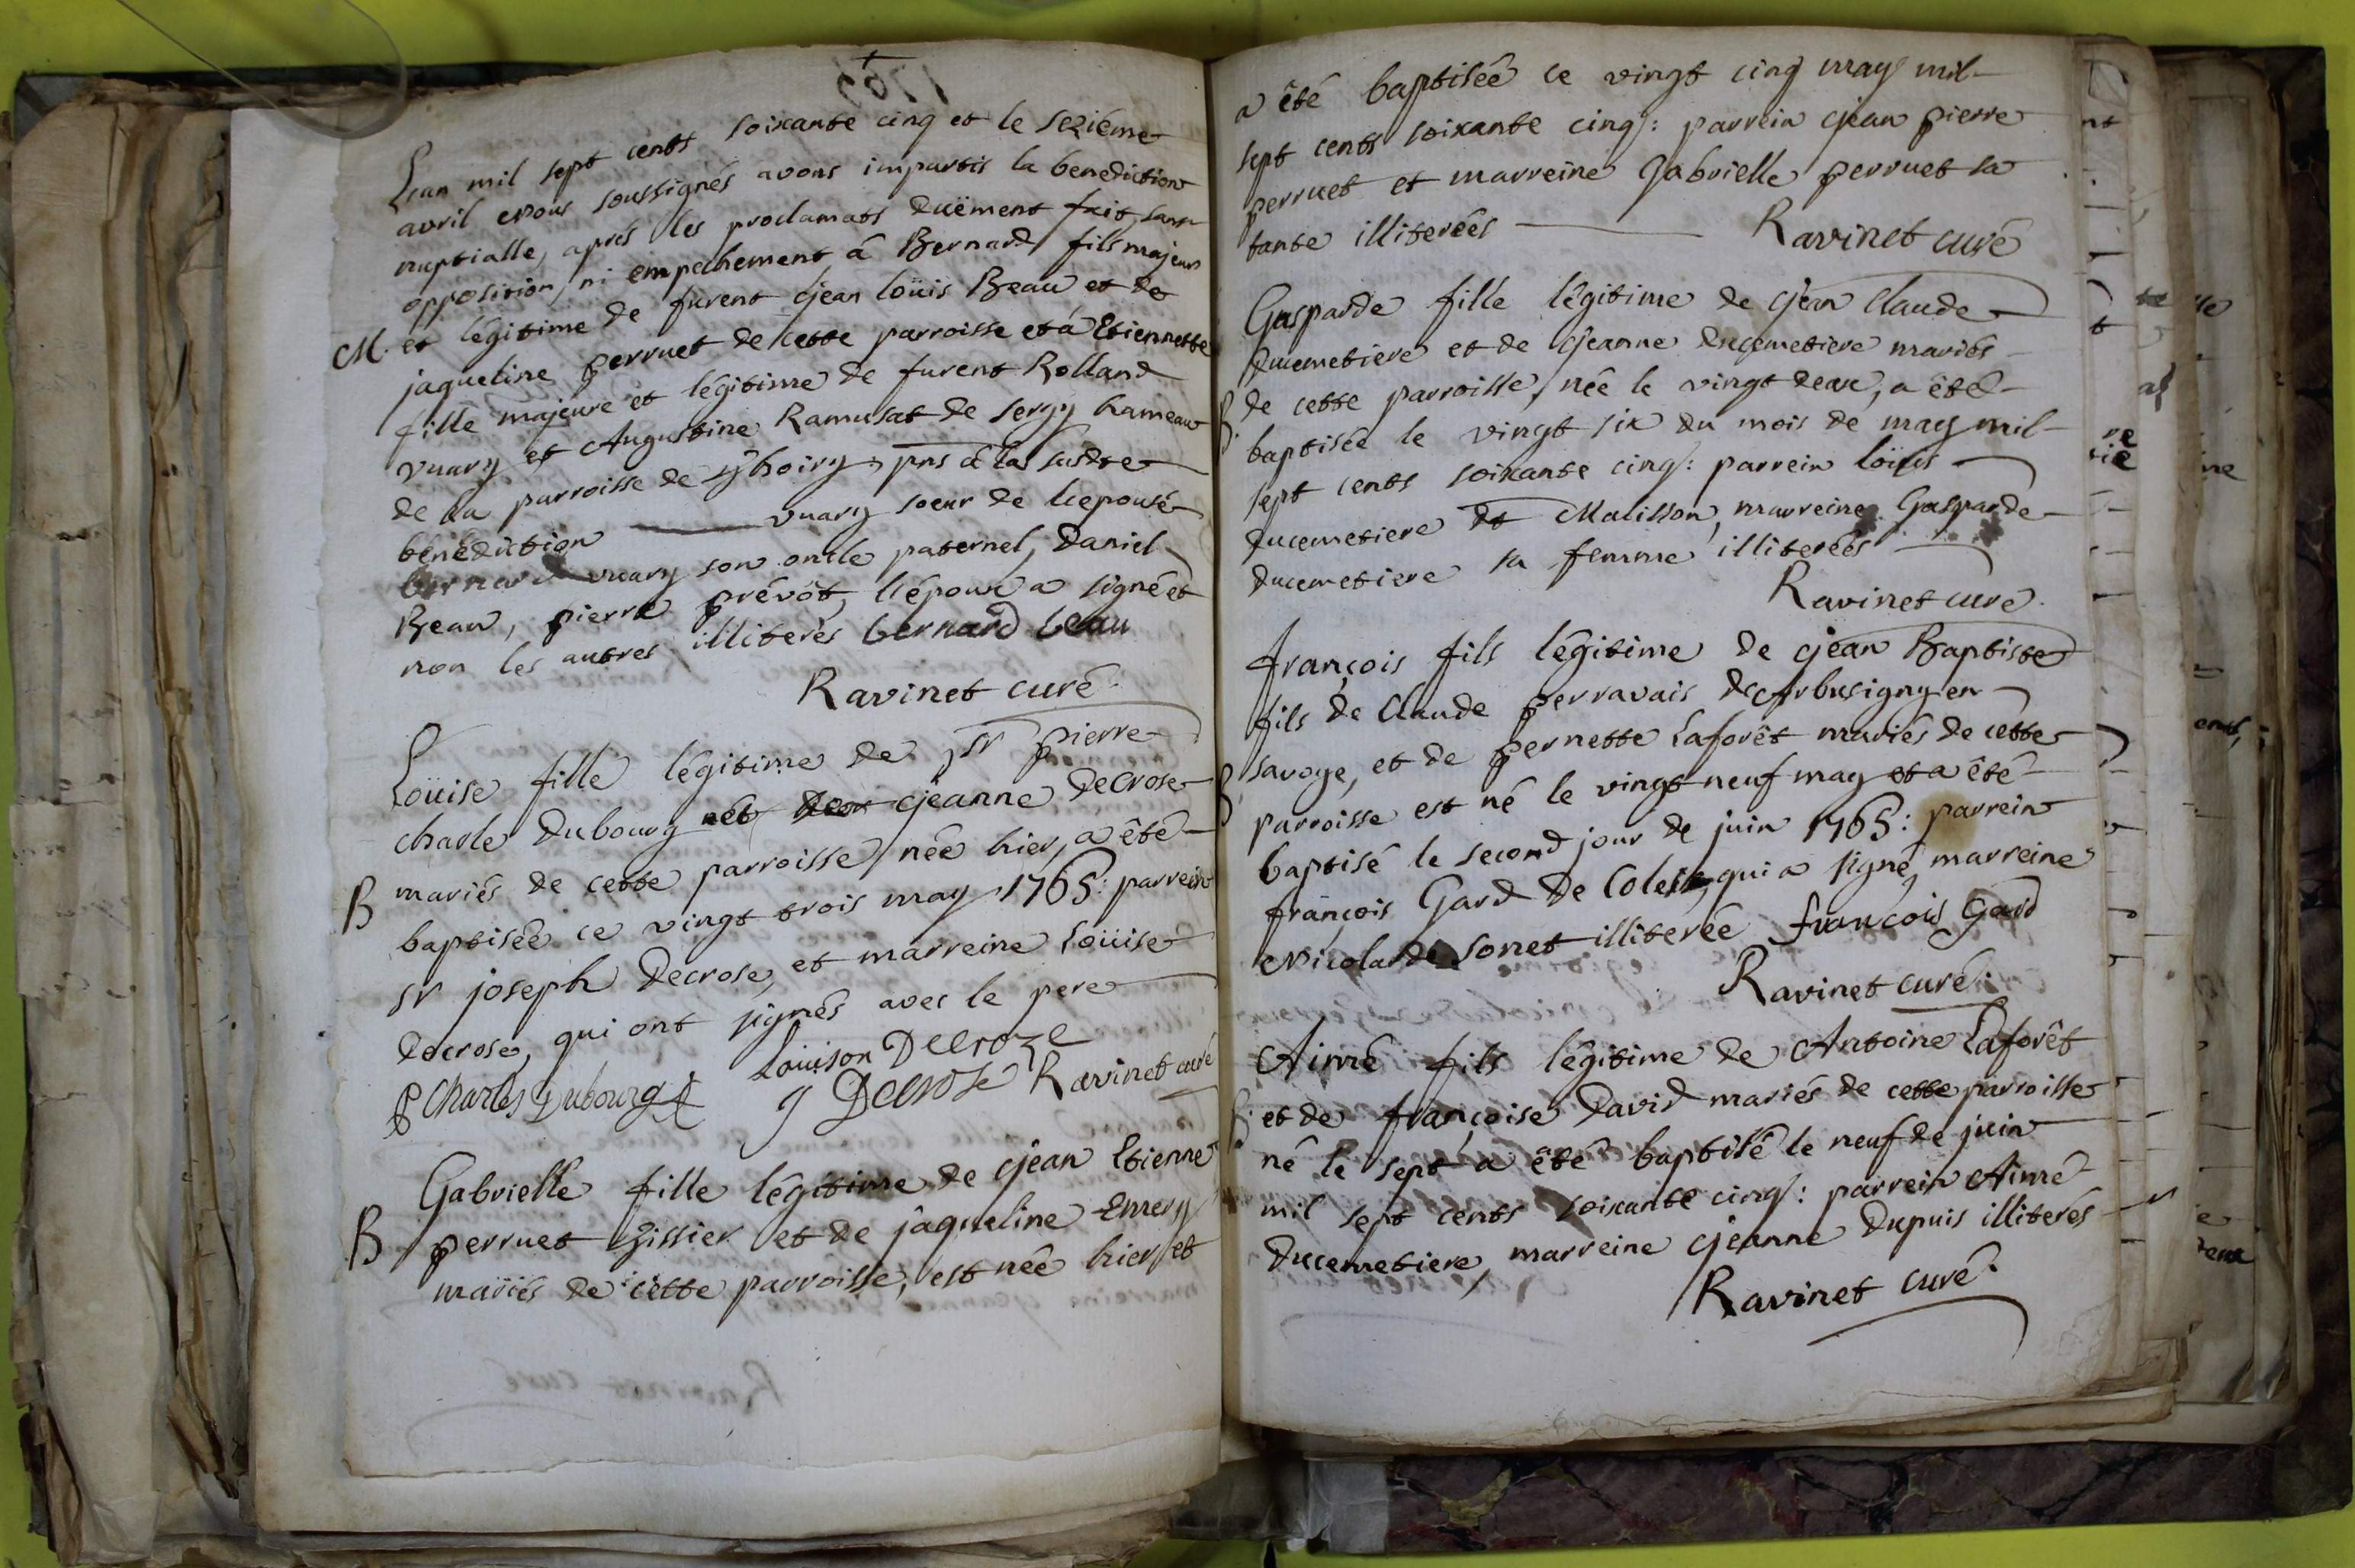 1765
Lan mil sept cents soixante cinq et le sezième
avril nous soussignés avons impartis la benediction
nuptialle, aprés les proclamats duëment fait sans
opposition ni empechement á Bernard fils majeur
M. et légitime de furent jean loüis Beau et de
jaqueline perruet de cette parroisse et á Etiennette
fille majeure et légitime de furent Rolland
vuary et Augustine Ramusat de sergy hameau
de la parroisse de thoiry, pns á la susdte
bénédiction vuary soeur de l'epousé
bernard vuary son oncle paternel, Daniel
Beau, pierre prévôt, l'époux a signé et
non les autres illiterés bernard beau
Ravinet curé.
Loüise fille légitime de sr pierre
charle Dubourg et jeanne Decrose
B mariés de cette parroisse, née hier, a êté
baptisée ce vingt trois may 1765: parrein
sr joseph Decrose, et marreine Loüise
Decrose, qui ont signés avec le pere
Louison Decroze
P Charles Dubourg J Decrose Ravinet curé
Gabrielle fille légitime de jean Etienne
B perruet Gissier et de jaqueline Emery
mariés de cette parroisse, est née hier et
a êté baptisée ce vingt cinq may mil
sept cents soixante cinq: parrein jean pierre
perruet et marreine Gabrielle perruet sa
tante illiterées Ravinet curé
Gasparde fille légitime de jean Claude
Ducemetiere et de jeanne Ducemetiere mariés
B. de cette parroisse, née le vingt deux, a êté
baptisée le vingt six du mois de may mil
sept cents soixante cinq: parrein loüis
Ducemetiere de Malisson, marreine Gasparde
Ducemetiere sa femme illiterées
Ravinet curé.
françois fils légitime de jean Baptiste
fils de Claude perravais Decrbusigny en
B. savoye, et de pernette Laforêt mariés de cette
parroisse est né le vingt neuf may et a êté
baptisé le second jour de juin 1765: parrein
françois Gard de Colex, qui a signé, marreine
Nicolarde sonet illiterée francois Gard
Ravinet curé.
Aimé fils légitime de Antoine Laforêt
B. et de françoise David mariés de cette parroisse
né le sept a êté baptisé le neuf de juin
mil sept cents soixante cinq: parrein Aimé
Ducemetiere, marreine jeanne Dupuis illiterés
Ravinet curé.